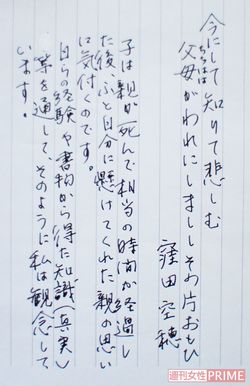 今にして知りて悲しむ
父母がわれにしましし その片おもひ
ちちはは
窪田空穂
子は親が死んで相当の時間が経過し
た後、ふと自分に懸けてくれた親の思い
に気付くのです。
自らの経験や書物から得た知識(真実)
等を通して、そのように私は観念して
います。
週刊女性PRIME